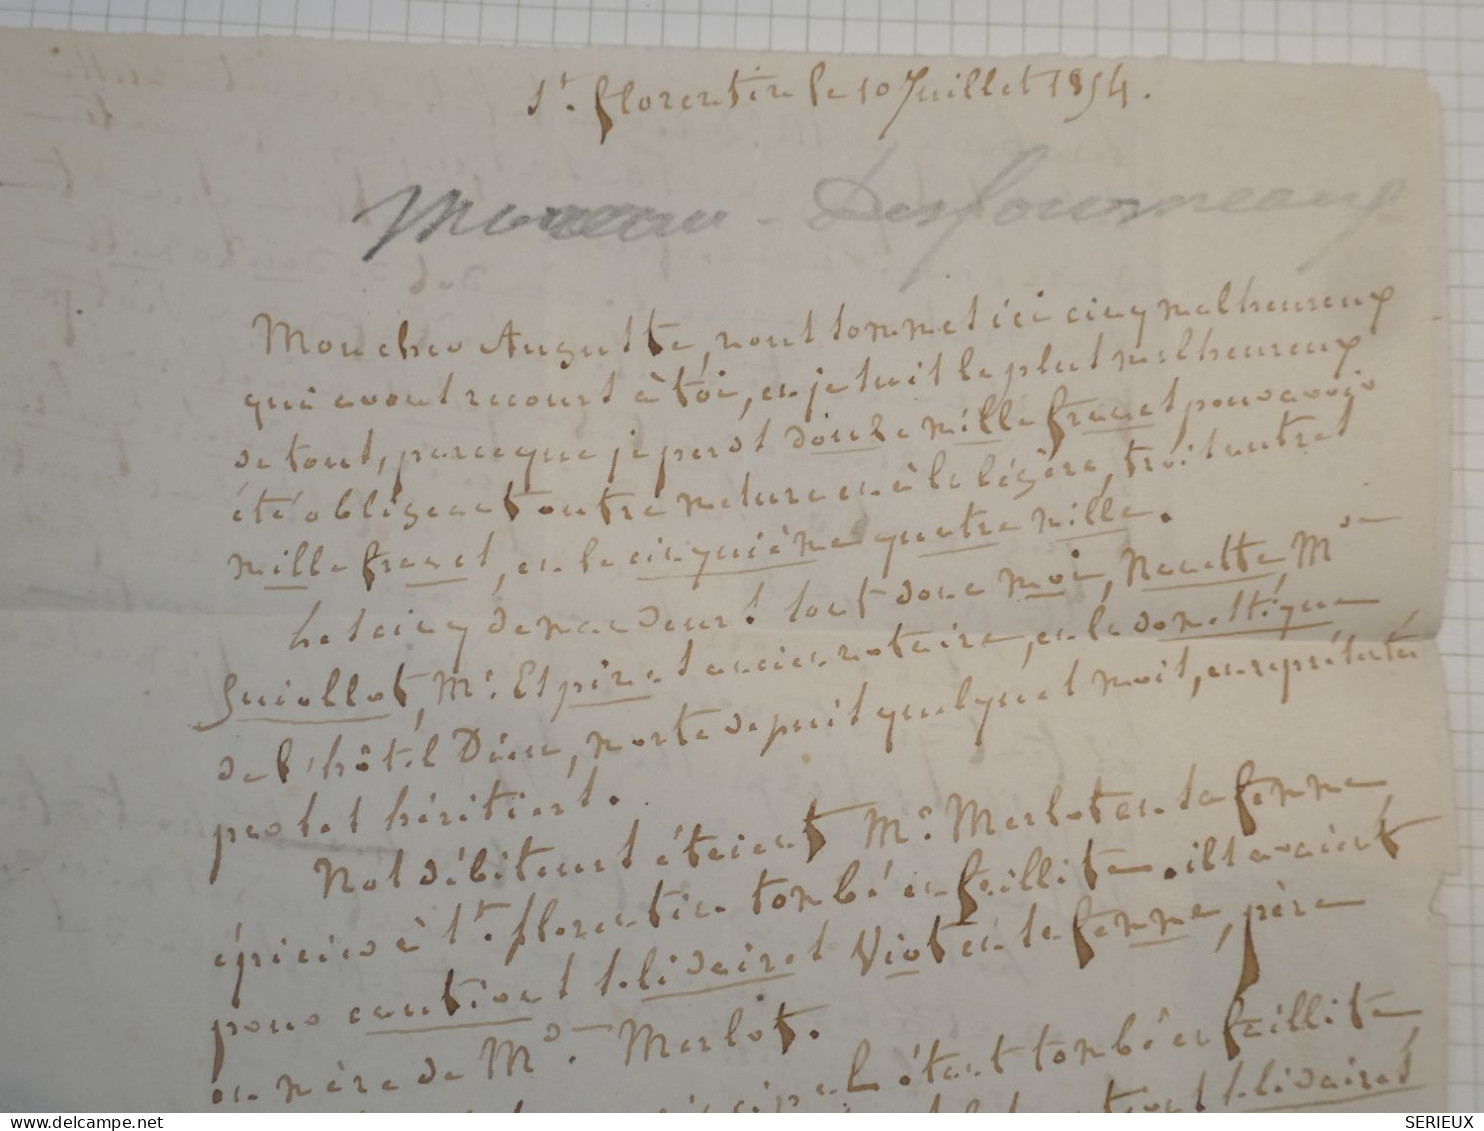 St. florentin le 10 Juillet 1854.
Moreau - Desfourneaux
Mon cher Auguste, nous sommes ici cinq malheureux
qui avons recours à toi, et je suis le plus malheureux
de tous, parceque je perds douze mille francs pour avoir
été obligeant outre mesure et à la légère, trois autres
mille francs, et le cinquième quatre mille.
Les cinq demandeurs sont donc moi, Nanette, Mde
Guiollot, Mr. Espinas ancien notaire, et la domestique
de l'hôtel Dieu, morte depuis quelques mois, et représentée
par les héritiers.
Nos débiteurs étaient Mr. Merlot et sa femme
épicier à St. florentin tombé en faillite. ils avaient
pour cautions solidaires Viot et sa femme, père
et mère de Md. Merlot.
l étant tombé en faillite,
solidaires
SERIEUX